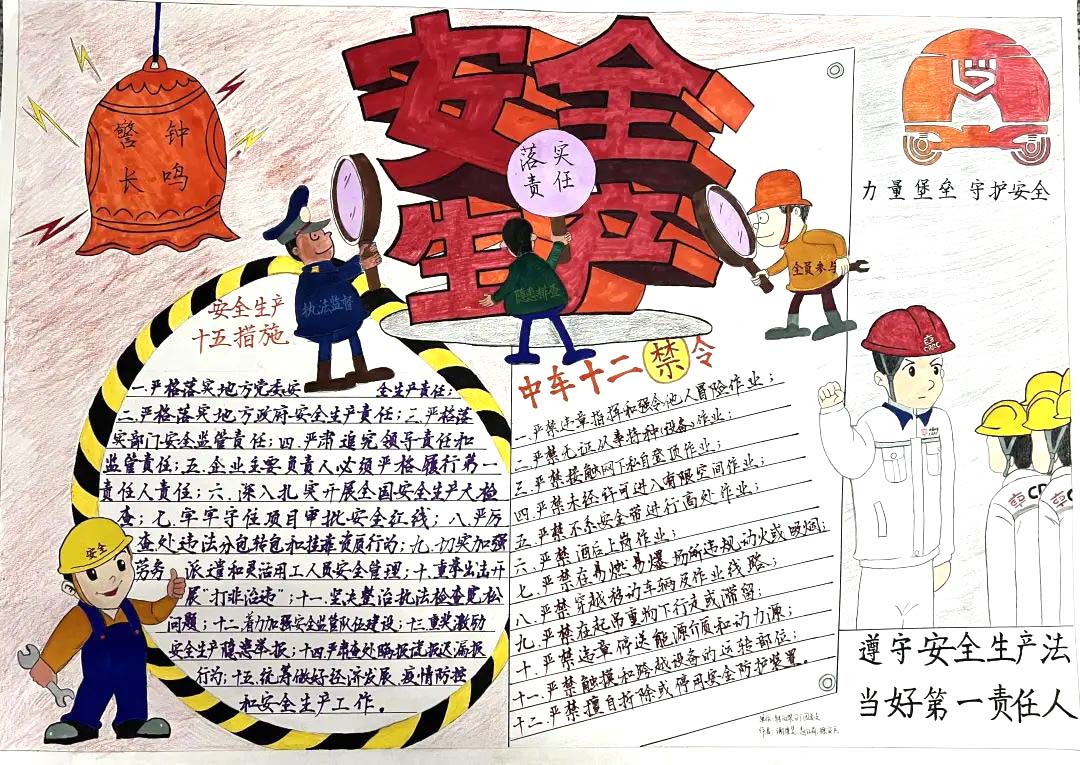 警钟
长鸣
安全
生产
落实
责任
执法监督
隐患排查
全员参与
力量堡垒 守护安全
安全生产
十五措施
一.严格落实地方党委安全生产责任;
二.严格落实地方政府安全生产责任;三.严格落
实部门安全监管责任;四.严肃追究领导责任和
监管责任;五.企业主要负责人必须严格履行第一
责任人责任;六.深入扎实开展全国安全生产大检
查;七.牢牢守住项目审批安全红线;八.严厉
查处违法分包转包和挂靠资质行为;九.切实加强
劳务派遣和灵活用工人员安全管理;十.重拳出击开
展“打非治违”;十一.坚决整治执法检查宽松
问题;十二.着力加强安全监管队伍建设;十三.重奖激励
安全生产隐患举报;十四.严肃查处瞒报谎报迟报漏报
行为;十五.统筹做好经济发展、疫情防控
和安全生产工作。
安全
中车十二禁令
一.严禁违章指挥和强令他人冒险作业;
二.严禁无证从事特种(设备)作业;
三.严禁接触网下私自登顶作业;
四.严禁未经许可进入有限空间作业;
五.严禁不系安全带进行高处作业;
六.严禁酒后上岗作业;
七.严禁在易燃易爆场所违规动火或吸烟;
八.严禁穿越移动车辆及作业线路;
九.严禁在起吊重物下行走或滞留;
十.严禁违章停送能源介质和动力源;
十一.严禁触摸和跨越设备的运转部位;
十二.严禁擅自拆除或停用安全防护装置。
CRRC
遵守安全生产法
当好第一责任人